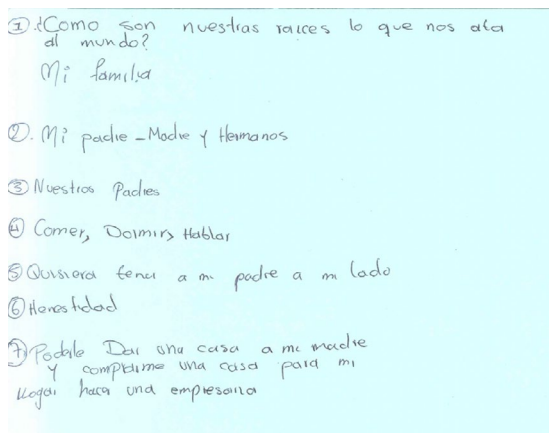 ① ¿Como son nuestras raices lo que nos ata
al mundo?
Mi familia
②. Mi padre - Madre y Hermanos
③ Nuestros Padres
④ Comer, Dormir, Hablar
⑤ Quisiera tener a mi padre a mi lado
⑥ Honestidad
⑦ Poderle Dar una casa a mi madre
y comprarme una casa para mi
llegar hacer una empresaria